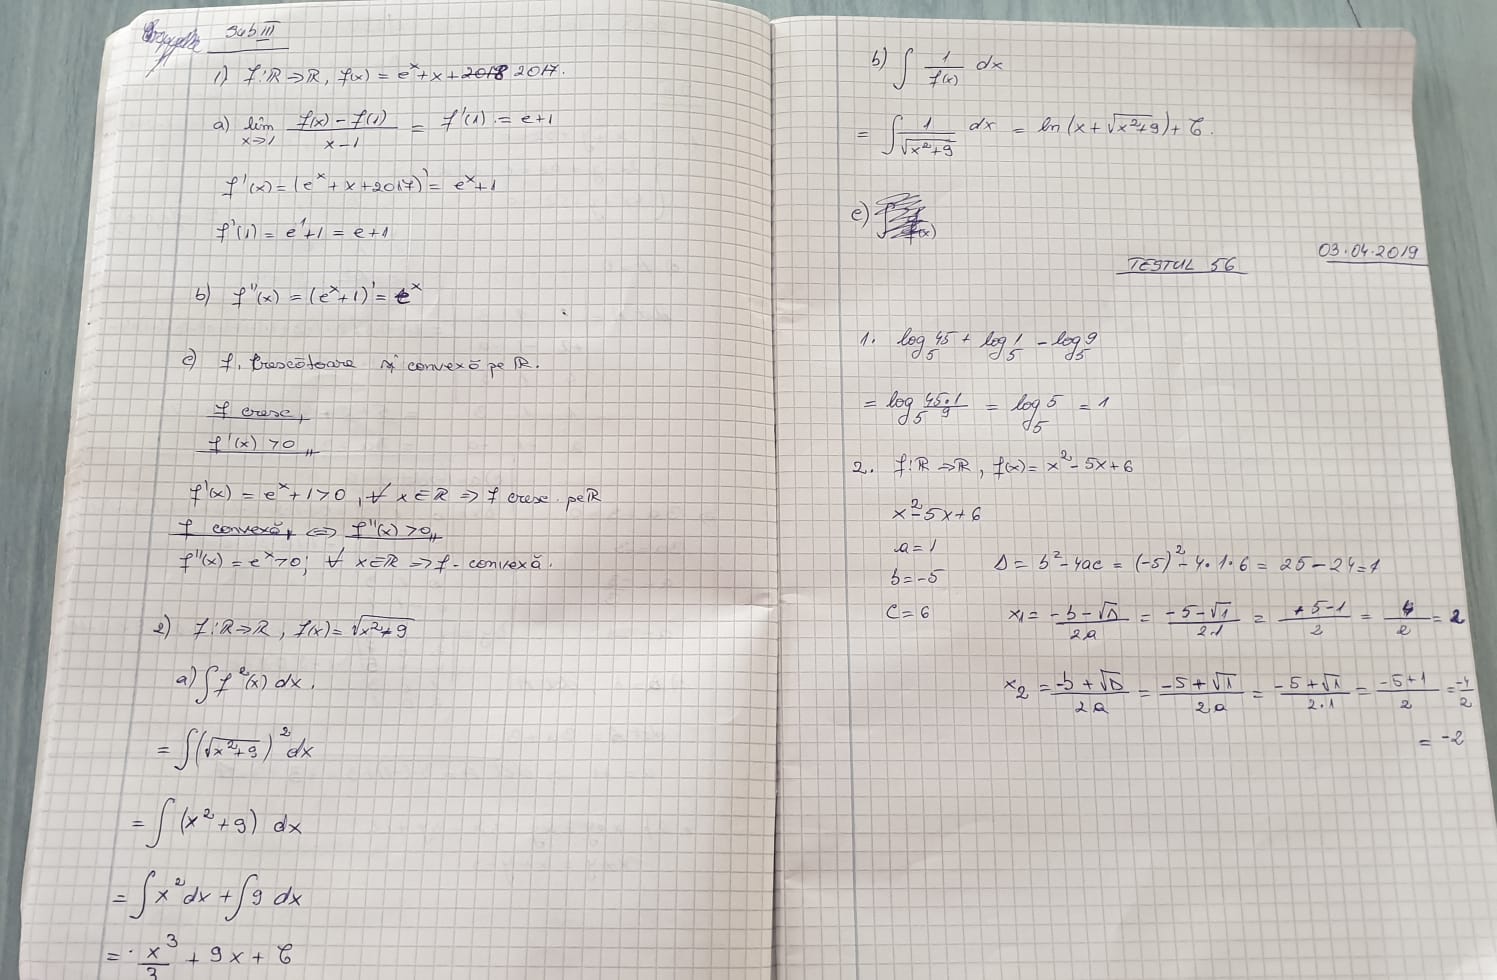 Sub III
1) f:R→R, f(x) = e^x + x + 2018 2017.
a) lim x→1 (f(x) − f(1))/(x−1) = f'(1) = e+1
f'(x) = (e^x + x + 2017)' = e^x + 1
f'(1) = e^1 + 1 = e+1
b) f''(x) = (e^x + 1)' = e^x
c) f. crescătoare și convexă pe R.
f cresc,
f'(x) > 0
f'(x) = e^x + 1 > 0, ∀ x ∈ R ⇒ f cresc. pe R
f convexă, ⇔ f''(x) > 0
f''(x) = e^x > 0; ∀ x ∈ R ⇒ f - convexă.
2) f:R→R, f(x) = √(x²+9)
a) ∫ f²(x) dx.
= ∫ (√(x²+9))² dx
= ∫ (x² + 9) dx
= ∫ x² dx + ∫ 9 dx
= x³/3 + 9x + C
b) ∫ 1/f(x) dx
= ∫ 1/√(x²+9) dx = ln(x + √(x²+9)) + C.
c)
03.04.2019
TESTUL 56
1. log₅45 + log₅1 − log₅9
= log₅ (45·1)/9 = log₅5 = 1
2. f:R→R, f(x) = x² − 5x + 6
x² − 5x + 6
a = 1
b = −5
c = 6
Δ = b² − 4ac = (−5)² − 4·1·6 = 25 − 24 = 1
x₁ = (−b − √Δ)/2a = (−5 − √1)/2·1 = (+5 − 1)/2 = 4/2 = 2
x₂ = (−b + √Δ)/2a = (−5 + √1)/2a = (−5 + √1)/2·1 = (−5 + 1)/2 = −4/2
= −2